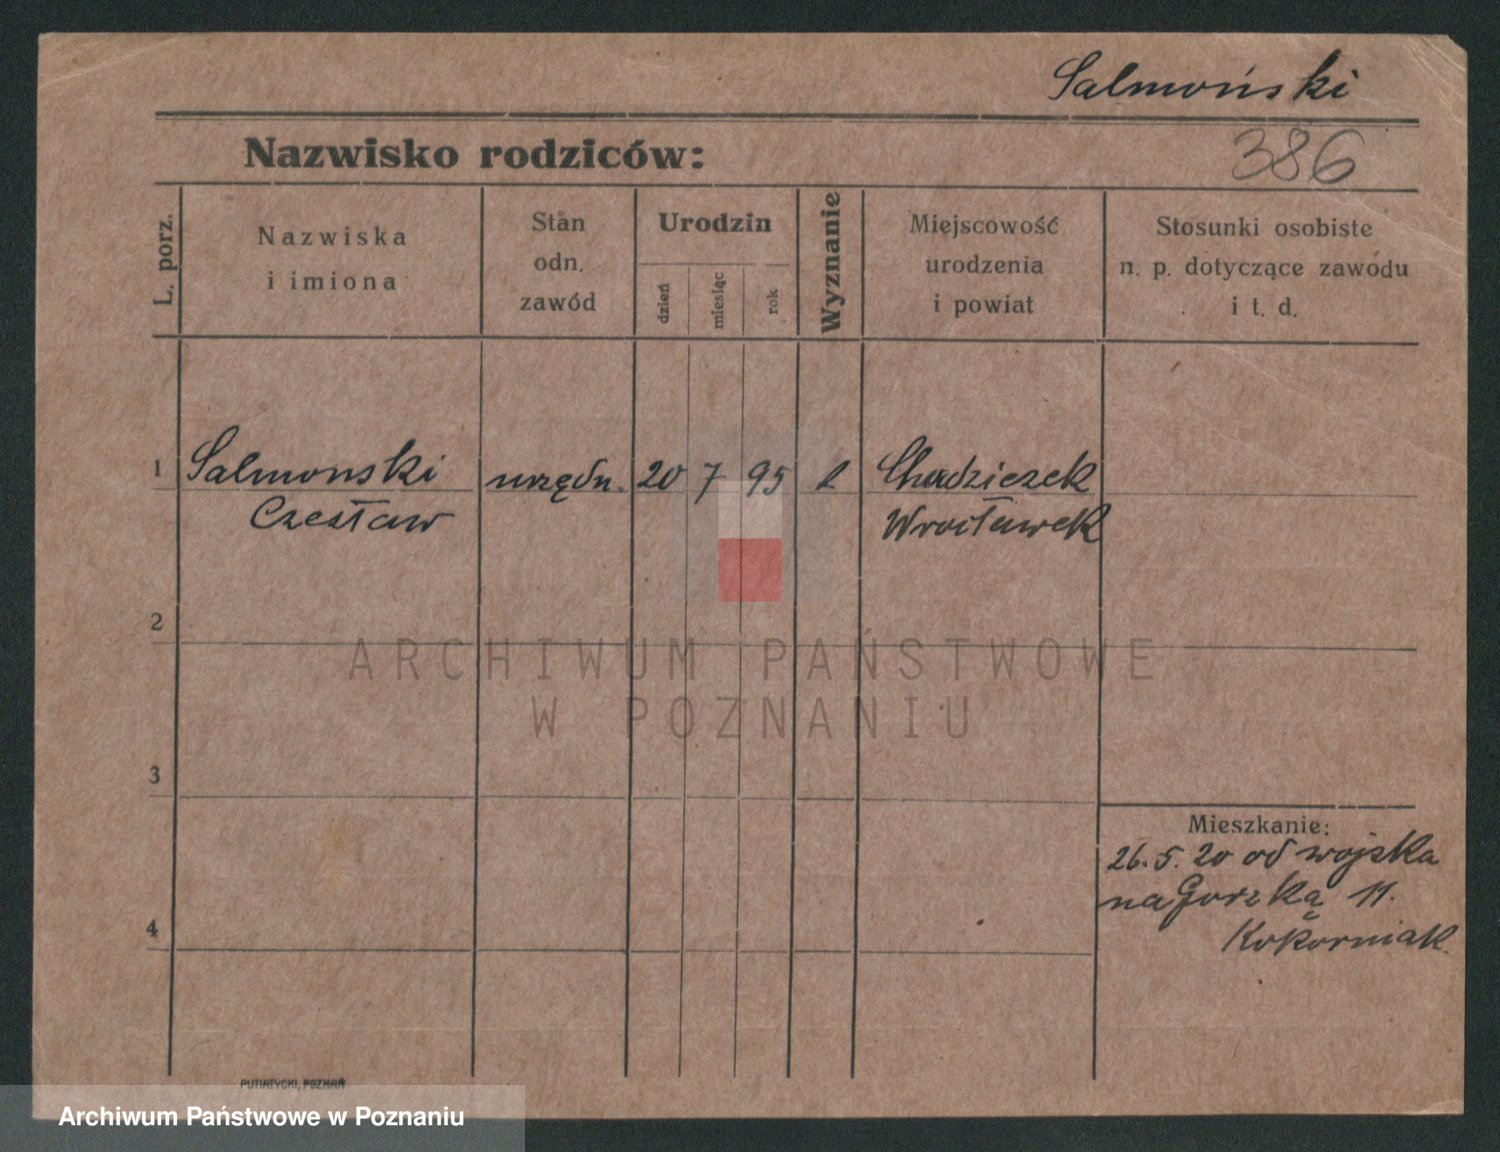 Salmoński
386
Nazwisko rodziców:
L. porz.
Nazwiska
i imiona
Stan
odn.
zawód
Urodzin
dzień
miesiąc
rok
Wyznanie
Miejscowość
urodzenia
i powiat
Stosunki osobiste
n. p. dotyczące zawodu
i t. d.
1 Salmonski urzędn. 20 7 95 Chodzieżek
Czesław Wrocławek
2
3
4
Mieszkanie:
26. 5. 20 od wojska
na Gorzką 11.
Kokorniak
PUTIATYCKI, POZNAŃ
ARCHIWUM PAŃSTWOWE
W POZNANIU
Archiwum Państwowe w Poznaniu